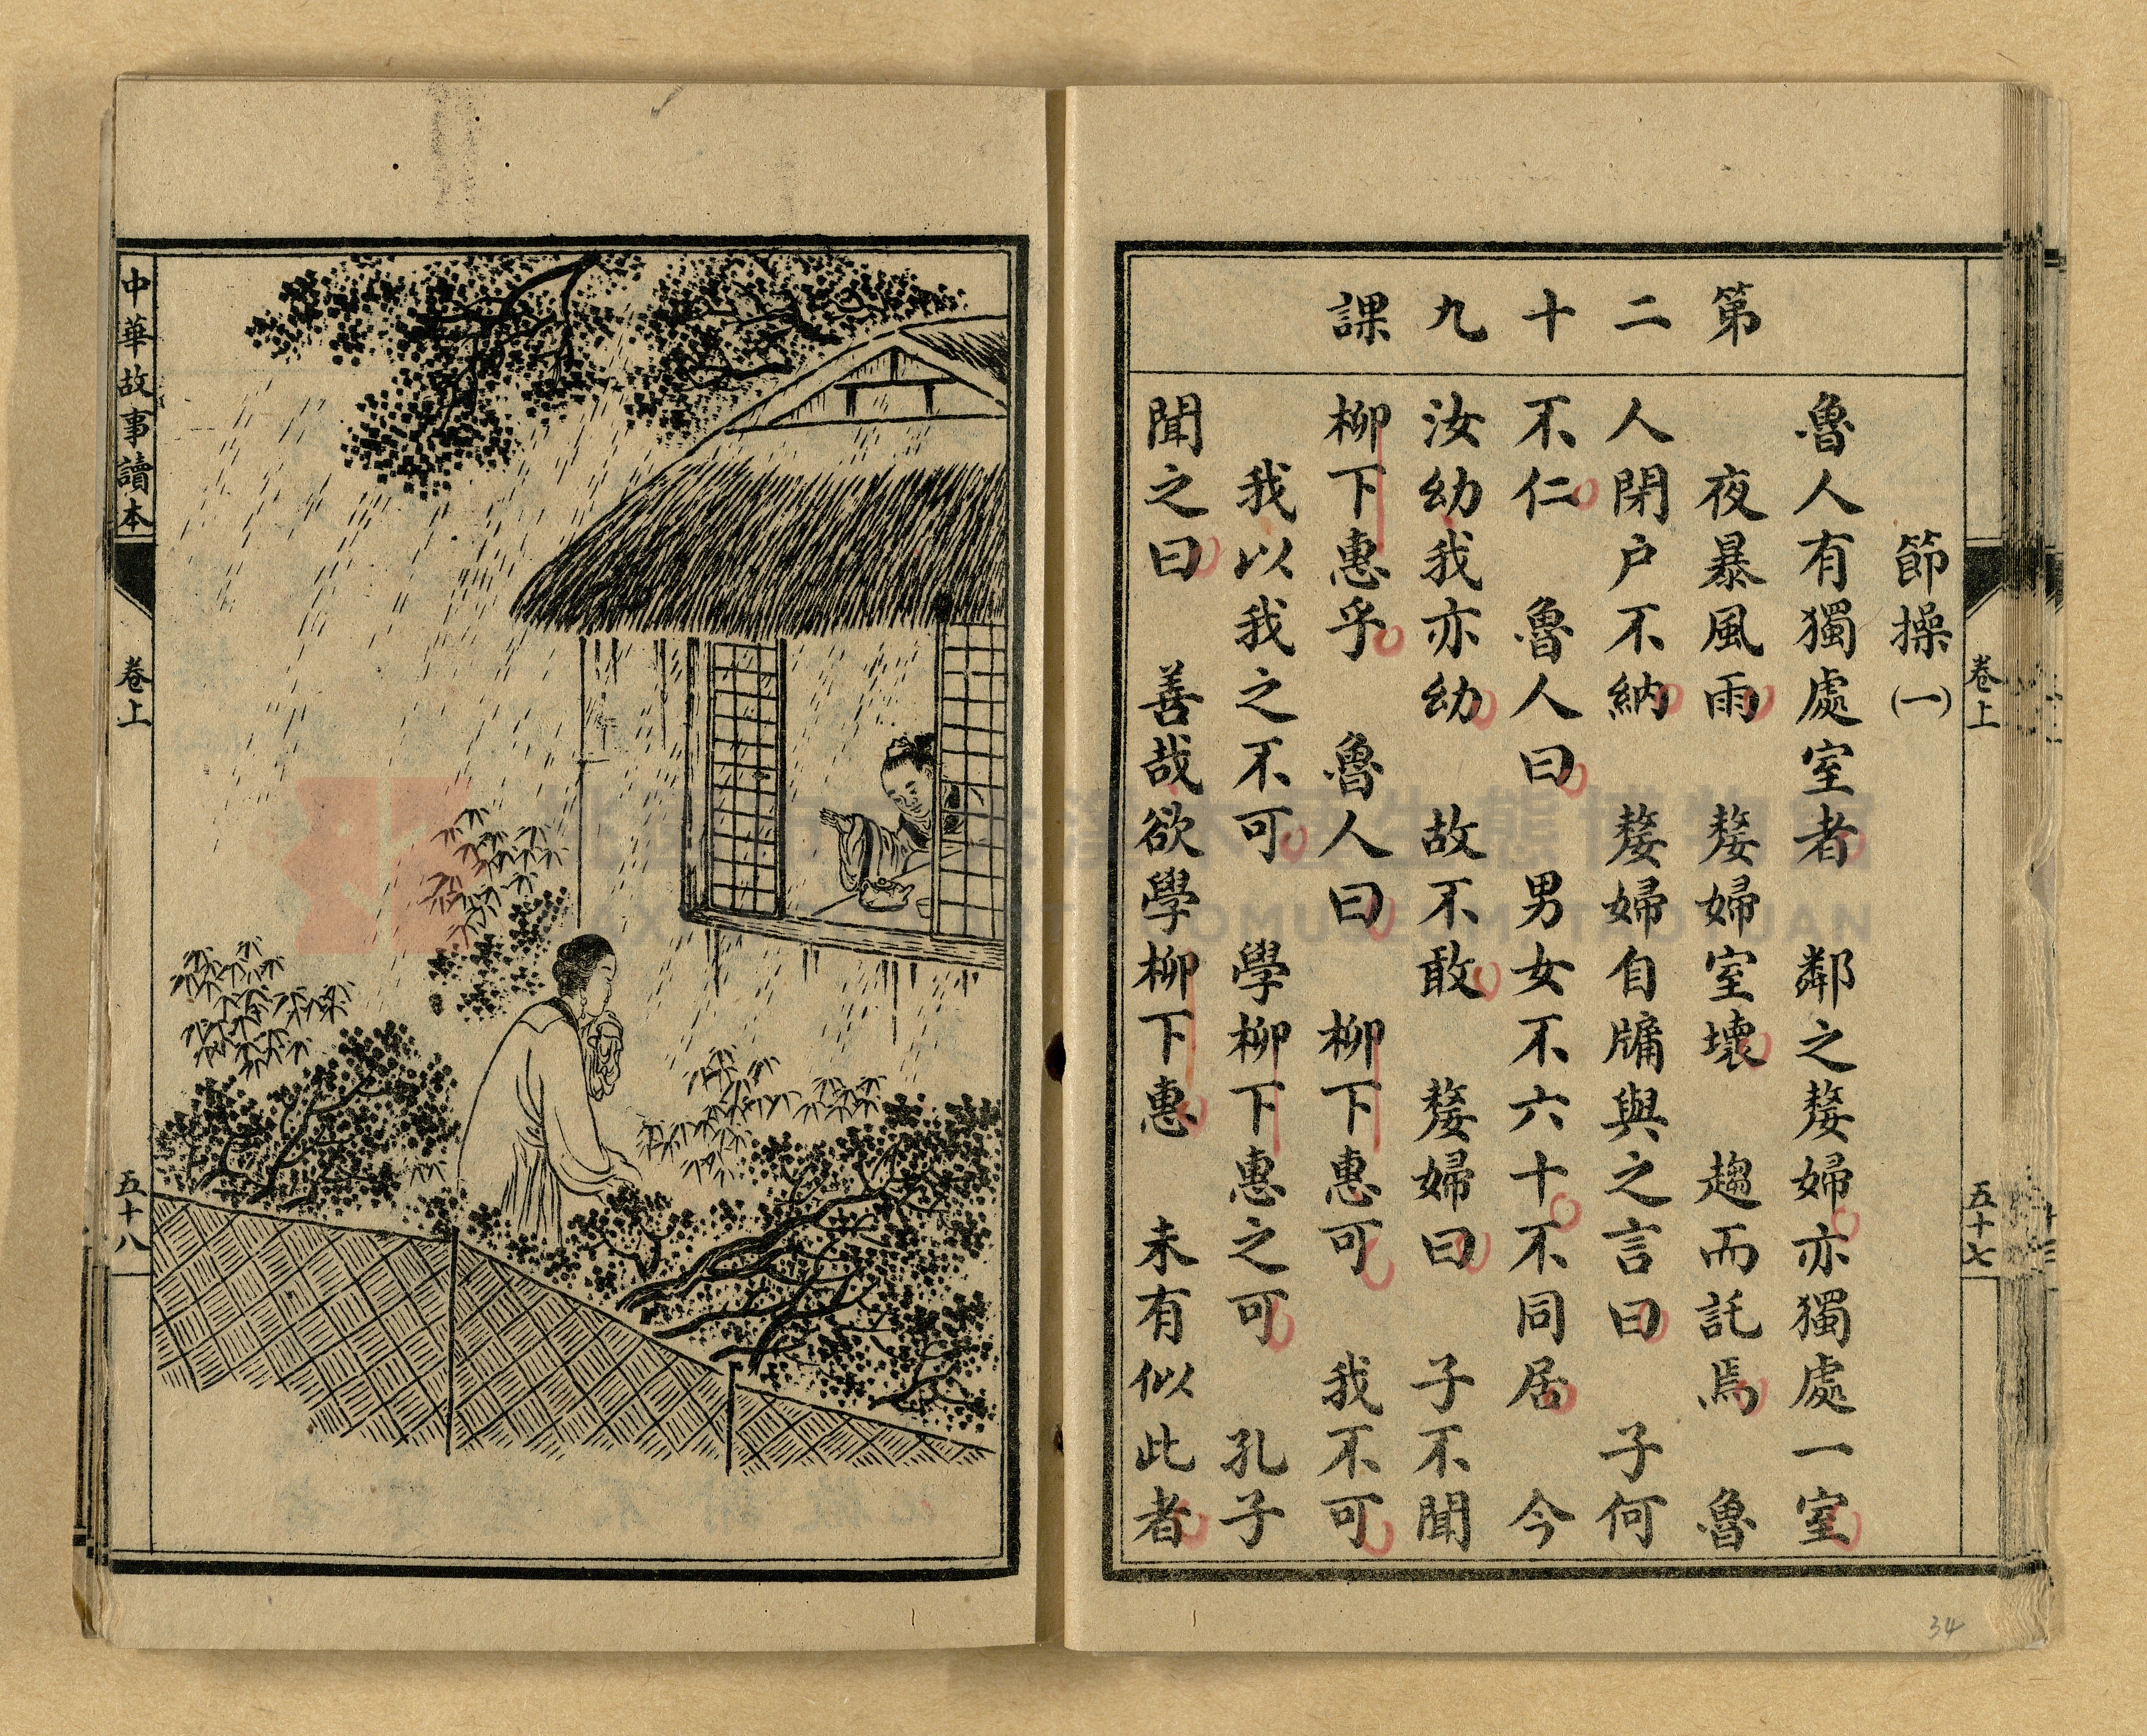 第二十九課
節操(一)
魯人有獨處室者 鄰之嫠婦亦獨處一室
夜暴風雨 嫠婦室壞 趨而託焉 魯
人閉户不納 嫠婦自牖與之言曰 子何
不仁 魯人曰 男女不六十不同居 今
汝幼我亦幼 故不敢 嫠婦曰 子不聞
柳下惠乎 魯人曰 柳下惠可 我不可
我以我之不可 學柳下惠之可 孔子
聞之曰 善哉欲學柳下惠 未有似此者
卷上
五十七
34
中華故事讀本
卷上
五十八